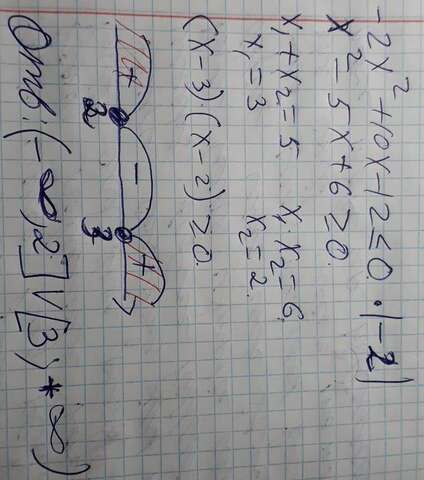 -2x²+10x-12≤0 ·(-2)
x²-5x+6≥0
x₁+x₂=5 x₁·x₂=6
x₁=3 x₂=2
(x-3)·(x-2)≥0
+ - +
2 3
Отв.(-∞,2]V[3,+∞)